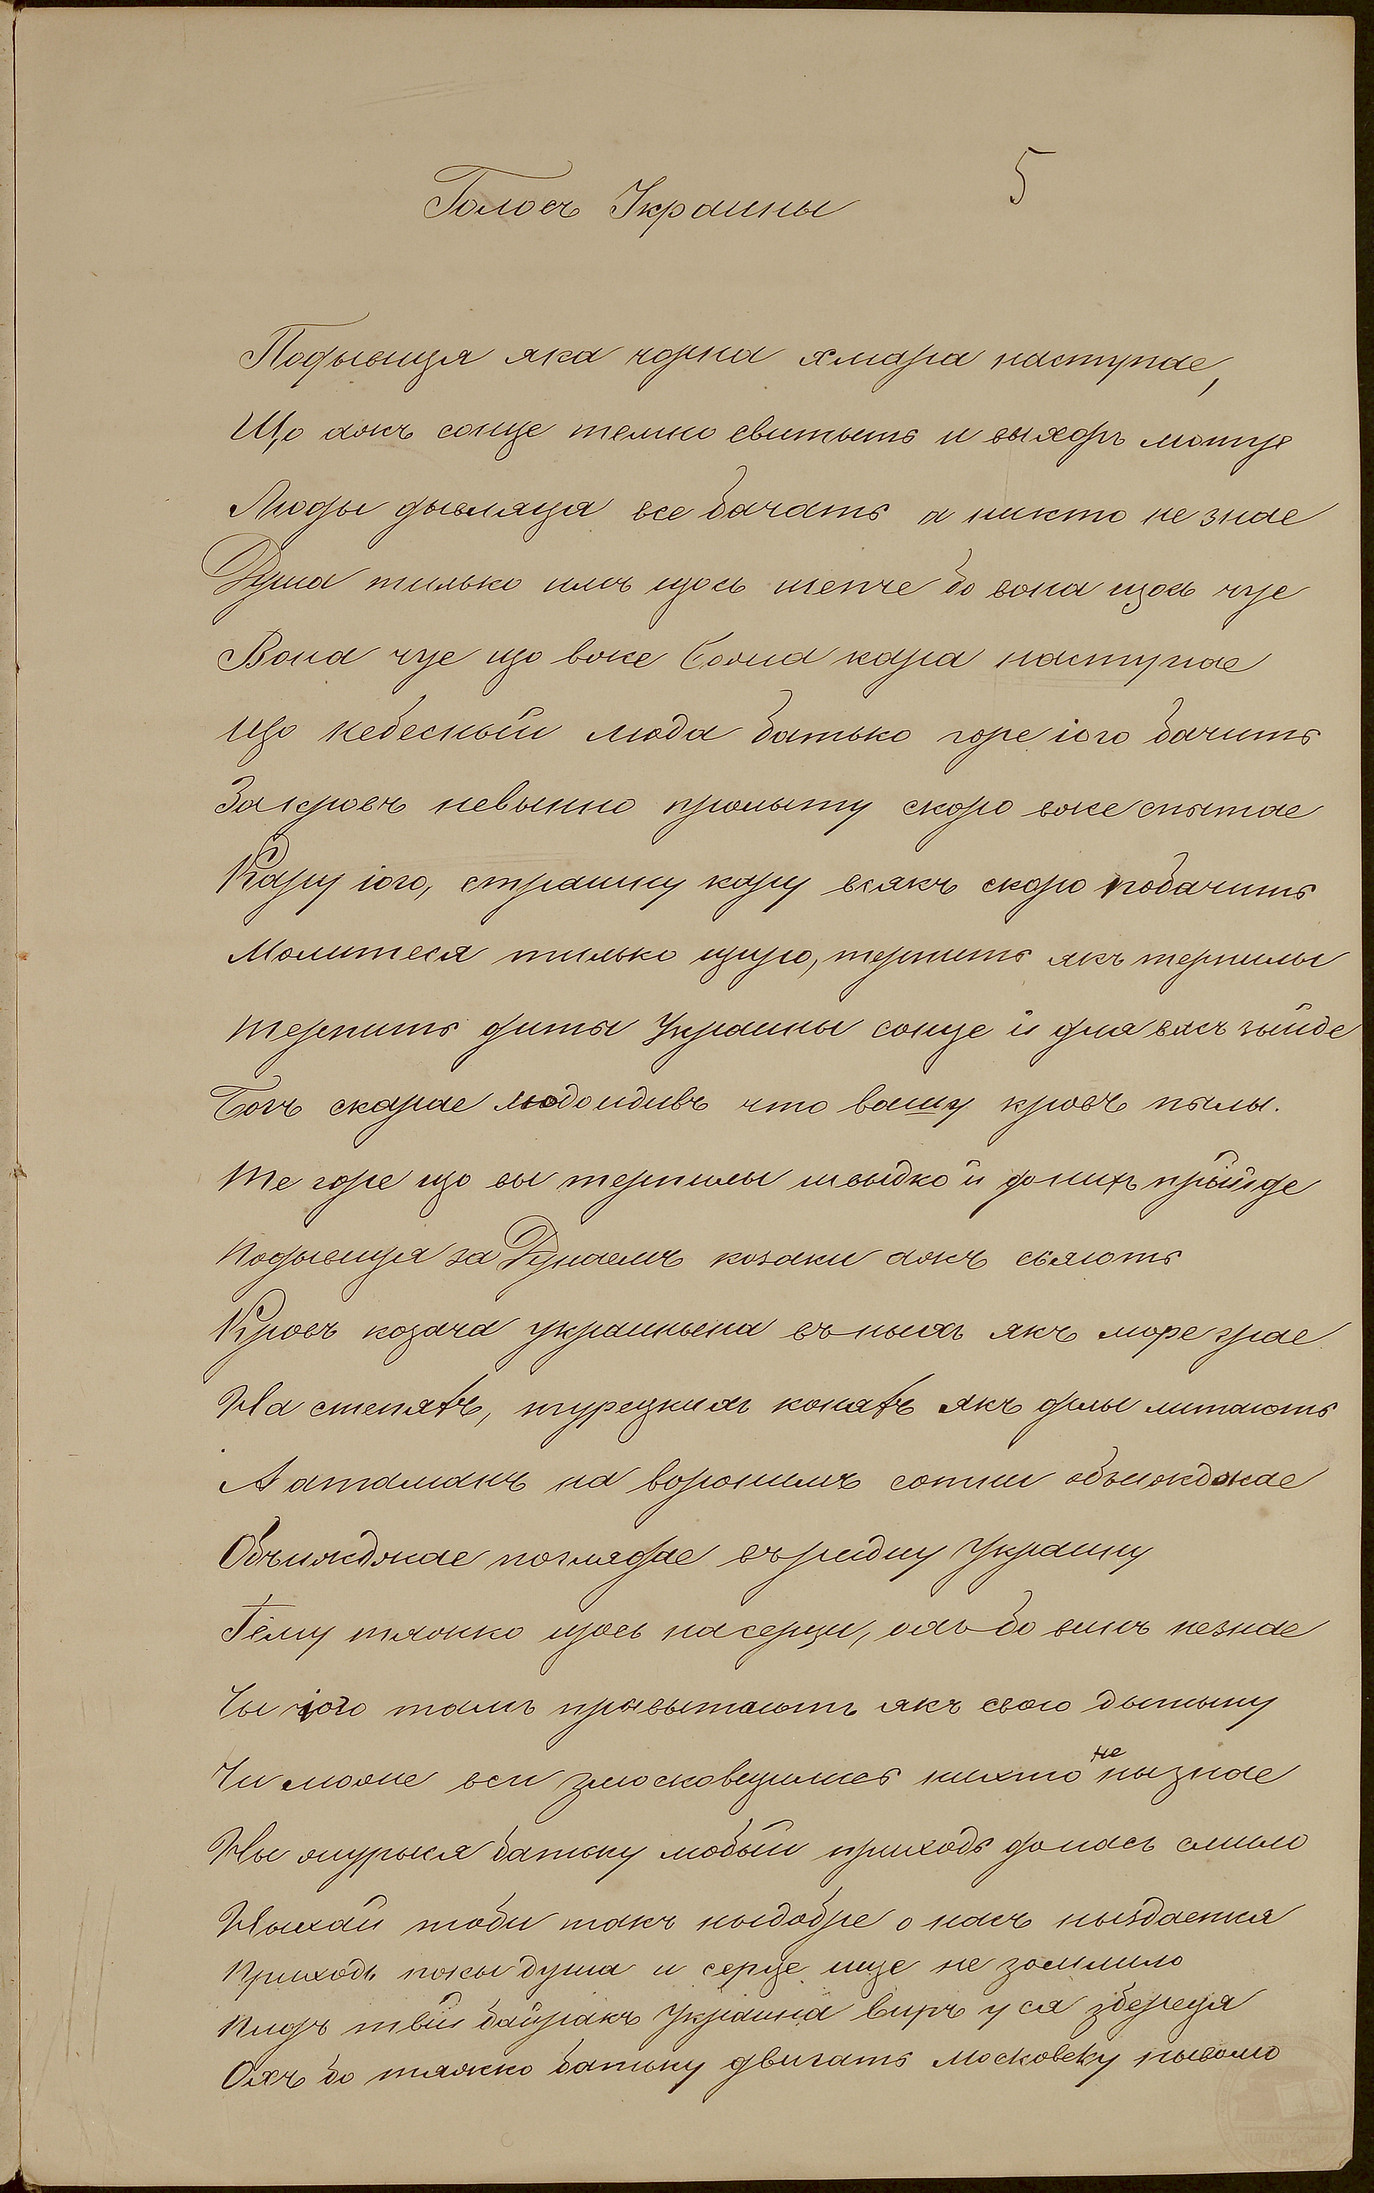 5
Голосъ Украины
Подывиця яка чорна хмара наступае,
Що ажъ сонце темно свитыть и выхоръ мотце
Люды дывляця все бачать а нихто не знае
Душа тилько имъ щось шепче бо вона щось чуе
Вона чуе що вже Божа кара наступае
Що небесный люда батько горе іого бачить
За кровъ невынно пролыту скоро вже спытае
Кару іого, страшну кару всякъ скоро побачить
Молитеся тилько щиро, терпить якъ терпилы
Терпить диты Украины сонце й для васъ зыйде
Богъ скарае людоидивъ что вашу кровъ пылы.
Те горе що вы терпилы швыдко й до нихъ прыйде
Подывиця за Дунаемъ козаки ажъ сяють
Кровъ козача украиньска въ ныхъ якъ море грае
На степяхъ, турецкихъ коняхъ якъ орлы литають
А атаманъ на воронимъ сотни объижджае
Объижджае поглядае въ ридну Украину
Іёму тяжко щось на серци, охъ бо винъ не знае
Чы іого тамъ прывытають якъ свою дытыну
Чи може вси змосковщились нихто не пызнае
Ны журыся батьку любый приходь до насъ смило
Ныхай тоби такъ ныдобре о насъ ныздаетця
Приходь покы душа и серце ище не зомлило
Пидъ твій байракъ Украина виръ уся збереця
Охъ бо тяжко батьку двигать Московску ныволю